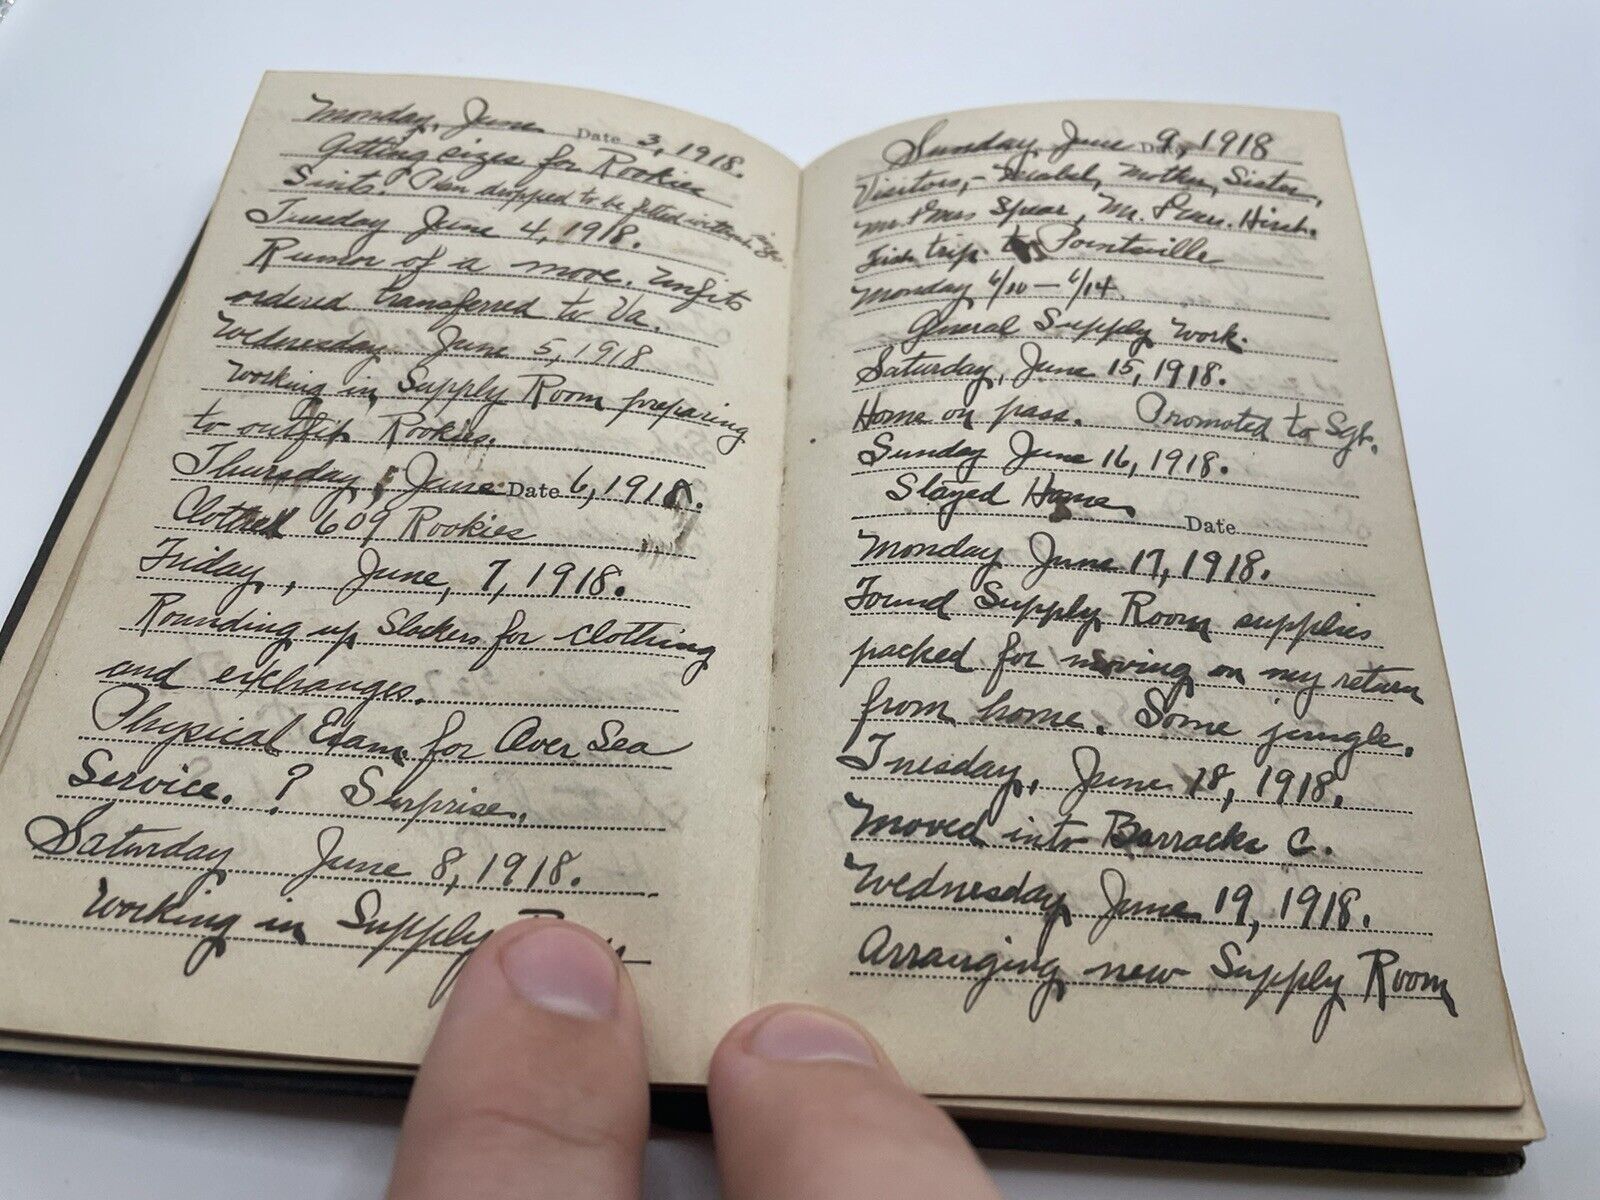 Monday, June Date 3, 1918.
Getting sizes for Rookies
Suits. Plan dropped to be fitted without sizes.
Tuesday June 4, 1918.
Rumor of a move. Unfits
ordered transferred to Va.
Wednesday June 5, 1918
Working in Supply Room preparing
to outfit Rookies.
Thursday, June Date 6, 1918.
Clothed 609 Rookies
Friday, June, 7, 1918.
Rounding up Slackers for clothing
and exchanges.
Physical Exam for Over Sea
Service. ? Surprise.
Saturday June 8, 1918.
Working in Supply
Sunday, June Date 9, 1918
Visitors,- Mother, Sister,
Mr. & Mrs Spear, Mr. & Mrs. Hirsh.
trip to Pointville
Monday 6/10 — 6/14
General Supply Work.
Saturday, June 15, 1918.
Home on pass. Promoted to Sgt.
Sunday June 16, 1918.
Stayed Home
Date
Monday June 17, 1918.
Found Supply Room supplies
packed for moving on my return
from home. Some jungle.
Tuesday, June 18, 1918.
Moved into Barracks C.
Wednesday June 19, 1918.
Arranging new Supply Room